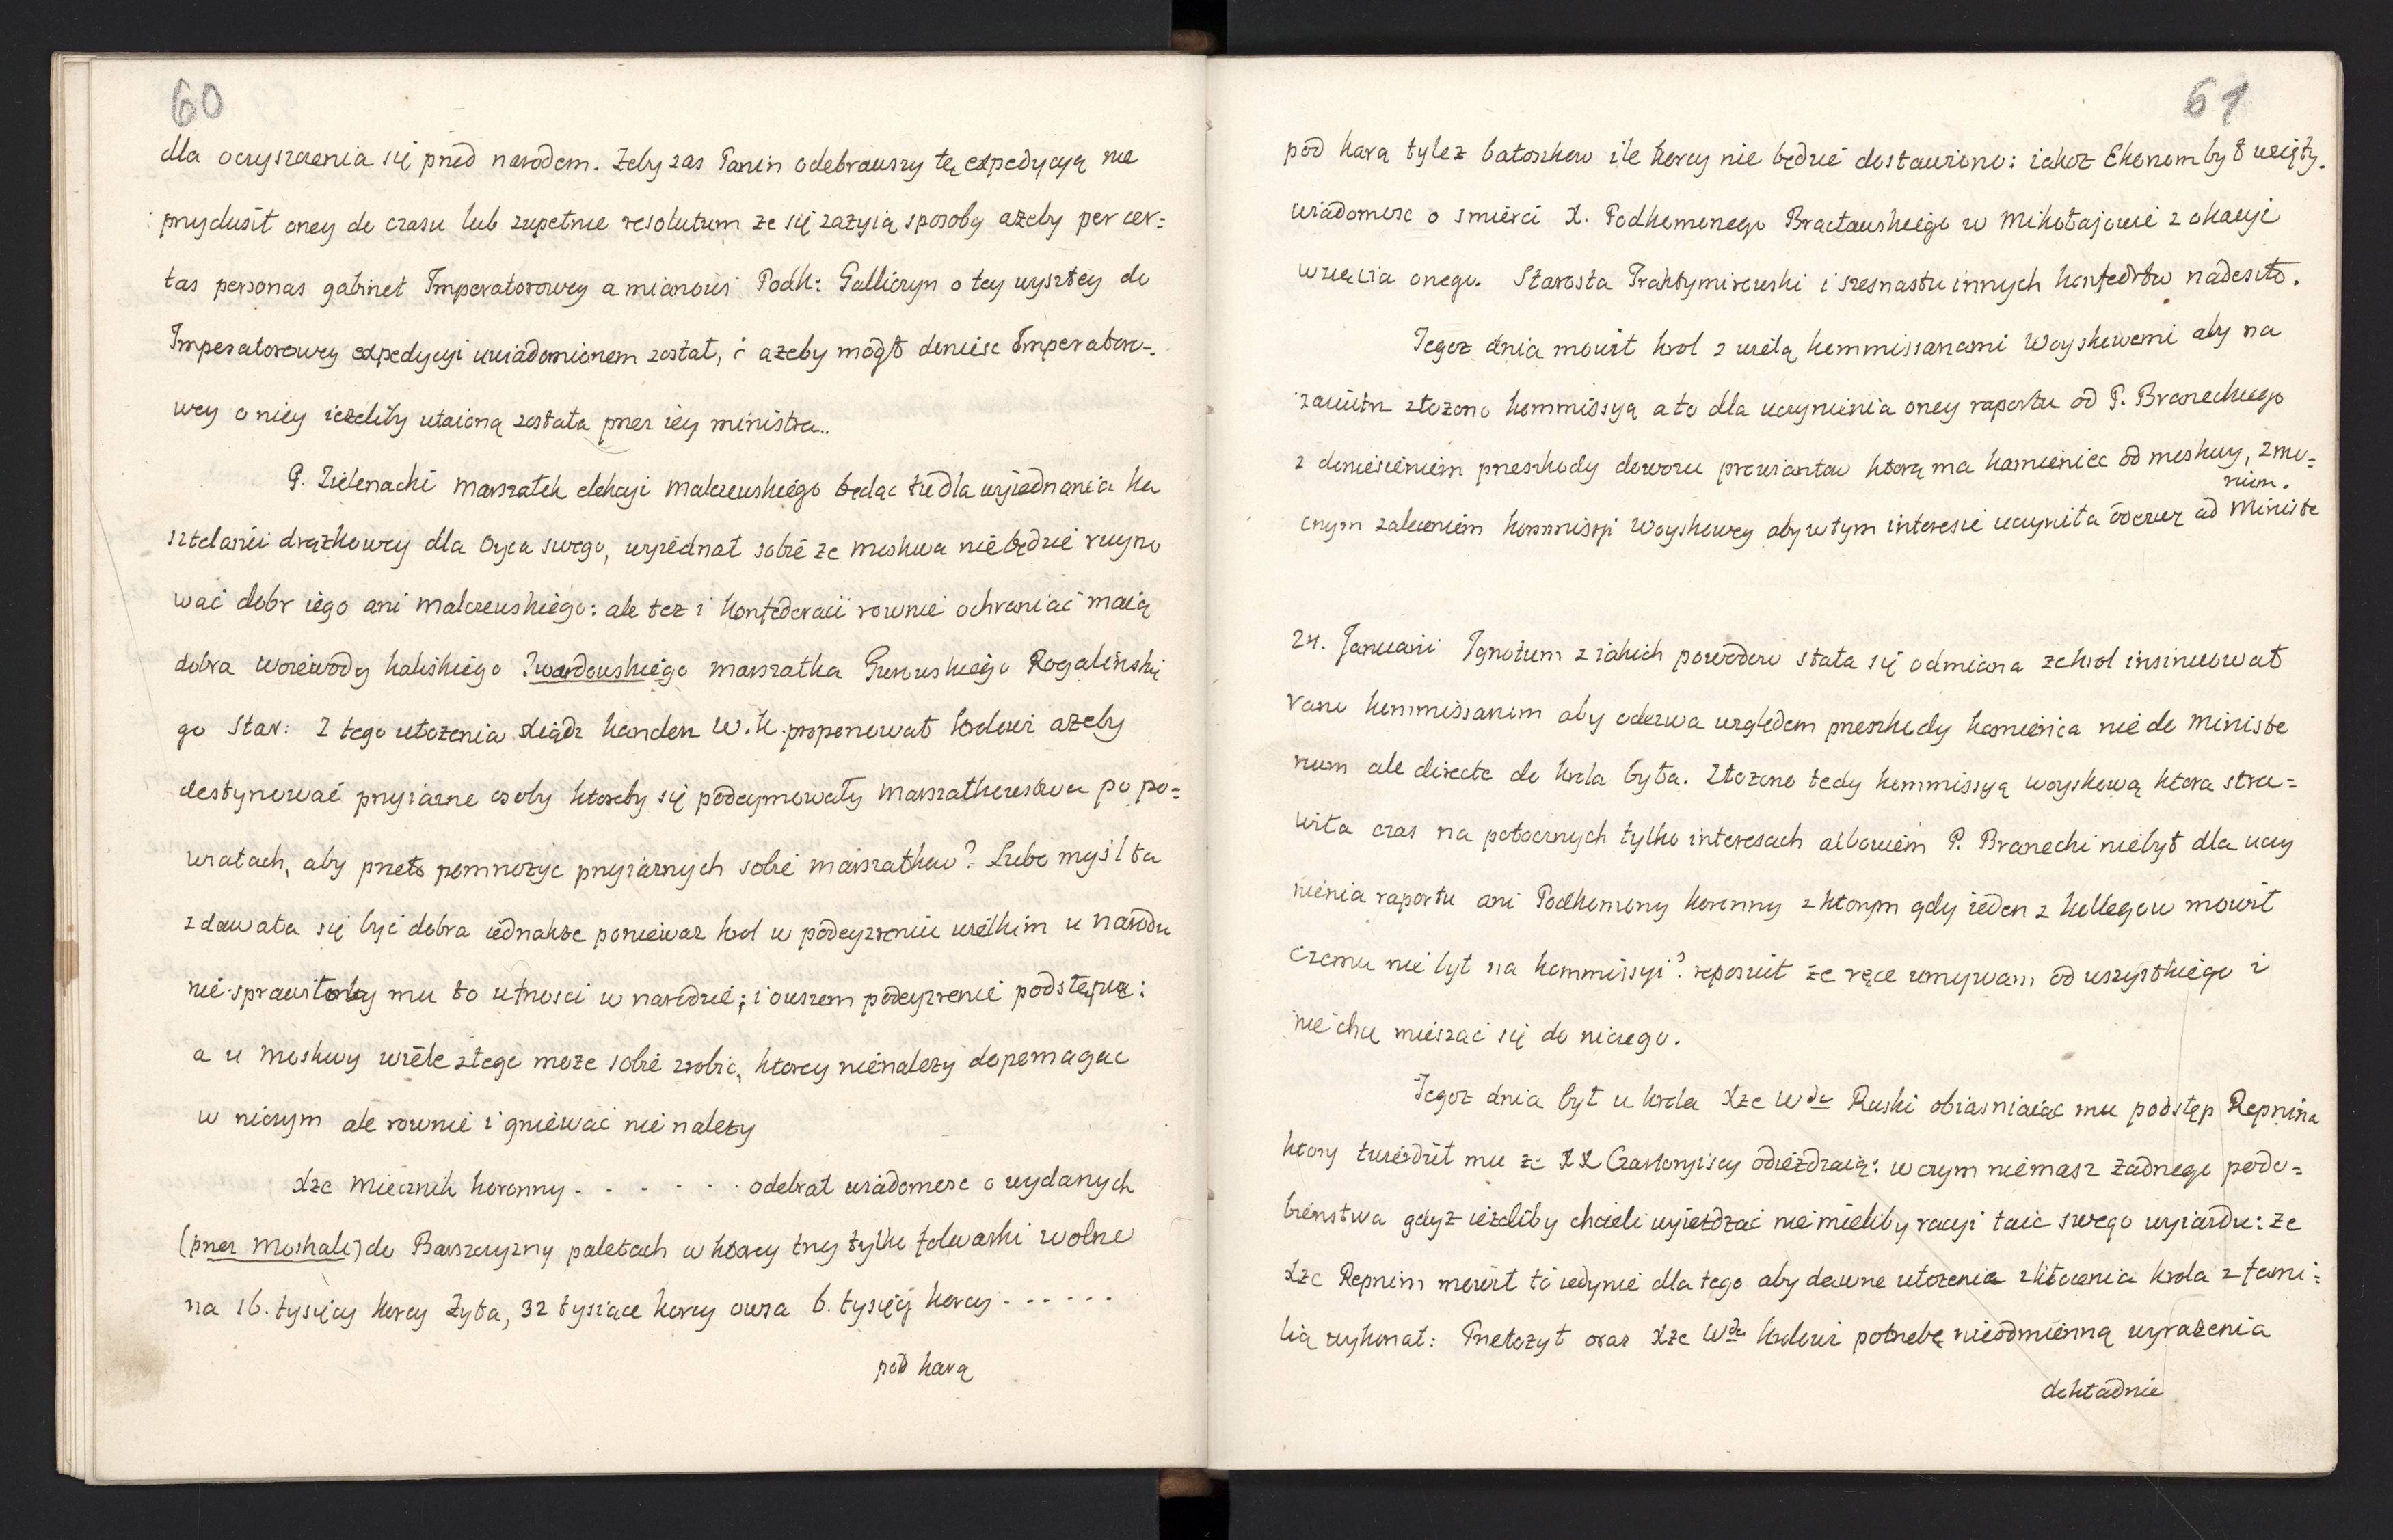 60
dla oczyszczenia się przed narodem. Zeby zas Panin odebrawszy tę expedycyą nie
przydusił oney do czasu lub zupełnie resolutum ze się zazyią sposoby azeby per cer=
tas personas gabinet Imperatorowey a mianowi Podk: Galliczyn o tey wyszłey do
Imperatorowey expedycyi uwiadomionem został, i azeby mógł doniesc Imperatoro-
wey o niey iezeliby utaioną została przez iey ministra..
P. Zielenacki marszałek elekcyi Malczewskiego będąc tu dla wyiednania ka
sztelanii drązkowey dla Oyca swego, wyiednał sobie ze moskwa nie będzie ruyno
wać dobr iego ani Malczewskiego: ale tez i Konfederacii rownie ochraniać maią
dobra woiewody kaliskiego Twardowskiego marszałka Gurowskiego Rogalinski
go Star: Z tego ułozenia xiądz kanclerz W. K. proponował krolowi azeby
destynować przyiazne osoby ktoreby się podeymowały marszałkowstwa po po=
wiatach, aby przeto pomnozyc przyiaznych sobie marszałkow? Lubo myśl ta
zdawała się być dobra iednakze poniewaz krol w podeyzreniu wielkim u narodu
nie sprawiłoby mu to ufnosci w narodzie; i owszem podeyzrenie podstępu:
a u Moskwy wiele z tego moze sobie zrobic, ktorey nienalezy dopomagac
w niczym ale rownie i gniewać nie nalezy
Xze Miecznik koronny - - - - - - odebrał wiadomosc o wydanych
(przez Moskali) do Barszczyzny paletach w ktorey trzy tylko folwarki wolne
na 16. tysięcy korcy zyta, 32 tysiące korcy owsa 6. tysięcy korcy - - - - - -
pod karą
61
pod karą tylez batozkow ile korcy nie będzie dostawiono: iakoz Ekonom był wzięty.
wiadomosc o smierci X. Podkomorzego Bracławskiego w Mikołajowie z okazyi
wzięcia onego. Starosta Traktymirowski i szesnastu innych konfedrtów nadeszło.
Tegoz dnia mowił krol z wielą kommissarzami Woyskowemi aby na
zaiutrz złozono kommissyą a to dla uczynienia oney raportu od P. Branechiego
z doniesieniem przeszkody dowozu prowiantow ktorą ma kamieniec od moskwy, z mo=
cnym zaleceniem kommissyi Woyskowey aby w tym interesie uczyniła odezwę ad Ministe
rium.
24. Januarii Ignotum z iakich powodow stała się odmiana ze krol insinuował
rano kommissarzom aby odezwa względem przeszkody kamieńca nie do Ministe
rium ale directe do krola była. Złozono tedy kommissyą woyskową ktora stra=
wiła czas na potocznych tylko interesach albowiem P. Branecki niebył dla uczy
nienia raportu ani Podkomorzy koronny z ktorym gdy ieden z kollegow mowił
czemu nie był na kommissyi? reposuit że ręce umywam od wszystkiego i
nie chcę mieszać się do niczego.
Tegoz dnia był u krola Xze Wda Ruski obiasniaiąc mu podstęp Repnina
ktory twierdził mu ze XX Czartoryiscy odieżdzaią: w czym niemasz żadnego podo=
bieństwa gdyz iezeliby chcieli wyiezdzać nie mieliby racyi taic swego wyiazdu: ze
Xze Repnim mowił to iedynie dla tego aby dawne ułozenie zkłocenia krola z fami=
lią wykonał: Przełozył oraz Xze Wda Krolowi potrzebę nieodmienną wyrazenia
dokładnie